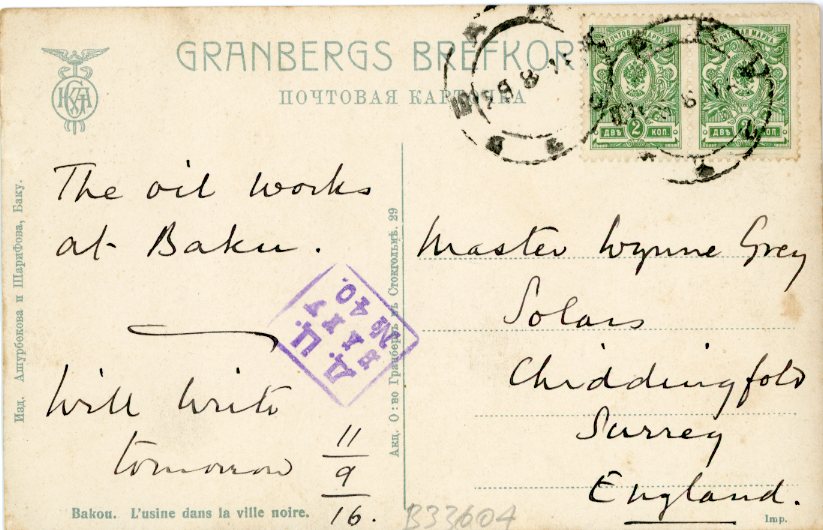 GRANBERGS BREFKORT
ПОЧТОВАЯ КАРТОЧКА
ПОЧТОВАЯ МАРКА
ДВѢ 2 КОП.
ПОЧТОВАЯ МАРКА
ДВѢ 2 КОП.
Изд. Ашурбекова и Шарифова, Баку.
The oil works
at Baku.
Will write
tomorrow
11
9
16.
Д. Ц.
БАКУ
№ 40.
Акц. О:во Гранбергъ въ Стокгольмѣ. 29
Master Wynne Grey
Solars
Chiddingfold
Surrey
England.
Bakou. L'usine dans la ville noire.
B33604
Imp.